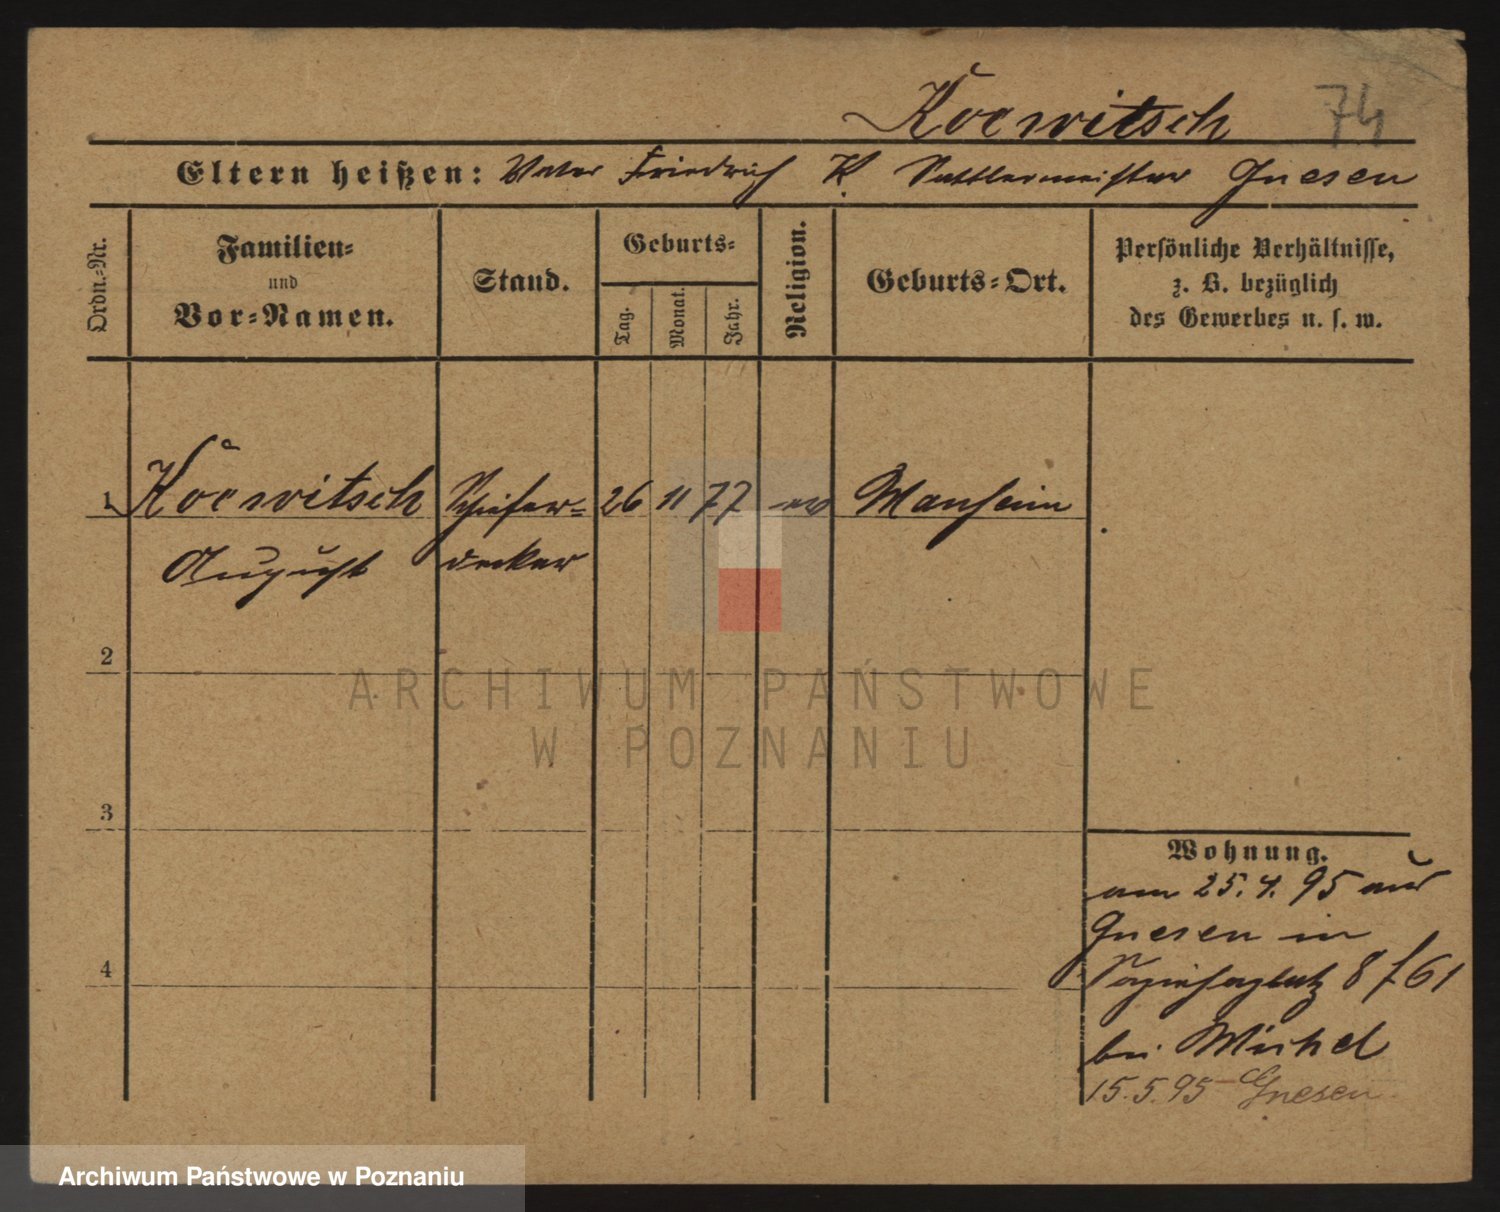 Koewitsch 74
Eltern heißen: Vater Friedrich K. Sattlermeister Gnesen
Ordn.-Nr.
Familien-
und
Vor-Namen.
Stand.
Geburts-
Tag.
Monat.
Jahr.
Religion.
Geburts-Ort.
Persönliche Verhältnisse,
z. B. bezüglich
des Gewerbes u. s. w.
1 Koewitsch Schiefer- 26 11 77 ev Manheim
August decker
2
ARCHIWUM PAŃSTWOWE
W POZNANIU
3
Wohnung.
am 25.4.95 aus
Gnesen in
Sapiehaplatz 8 f 61
4
bei Michel
15.5.95 Gnesen
Archiwum Państwowe w Poznaniu